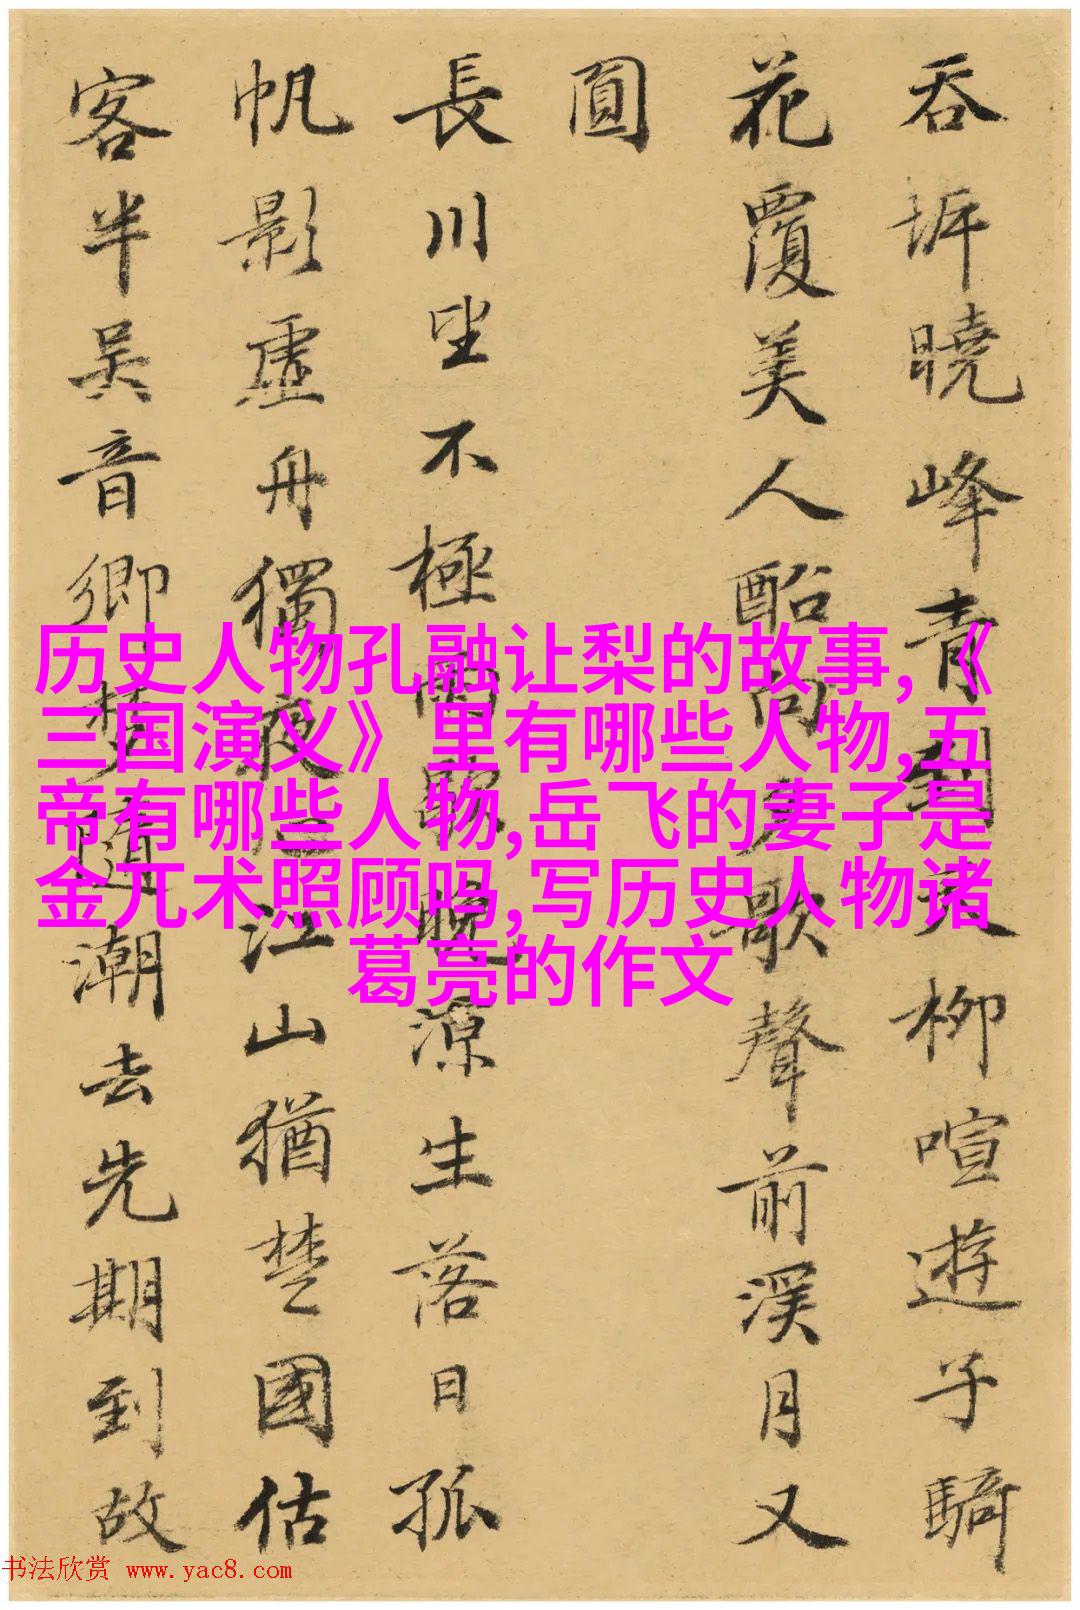 吞坼曉峰青闌天柳喧遊子騎
花覆美人酩向夕歌聲前溪月又
圓
長川坐不極雨歇晚凉生落日孤
帆影虛舟獨夜江山猶楚國估
客半吳音卿夢隨潮去先期到故
历史人物孔融让梨的故事,《
三国演义》里有哪些人物,五
帝有哪些人物,岳飞的妻子是
金兀术照顾吗,写历史人物诸
葛亮的作文
书法欣赏 www.yac8.com